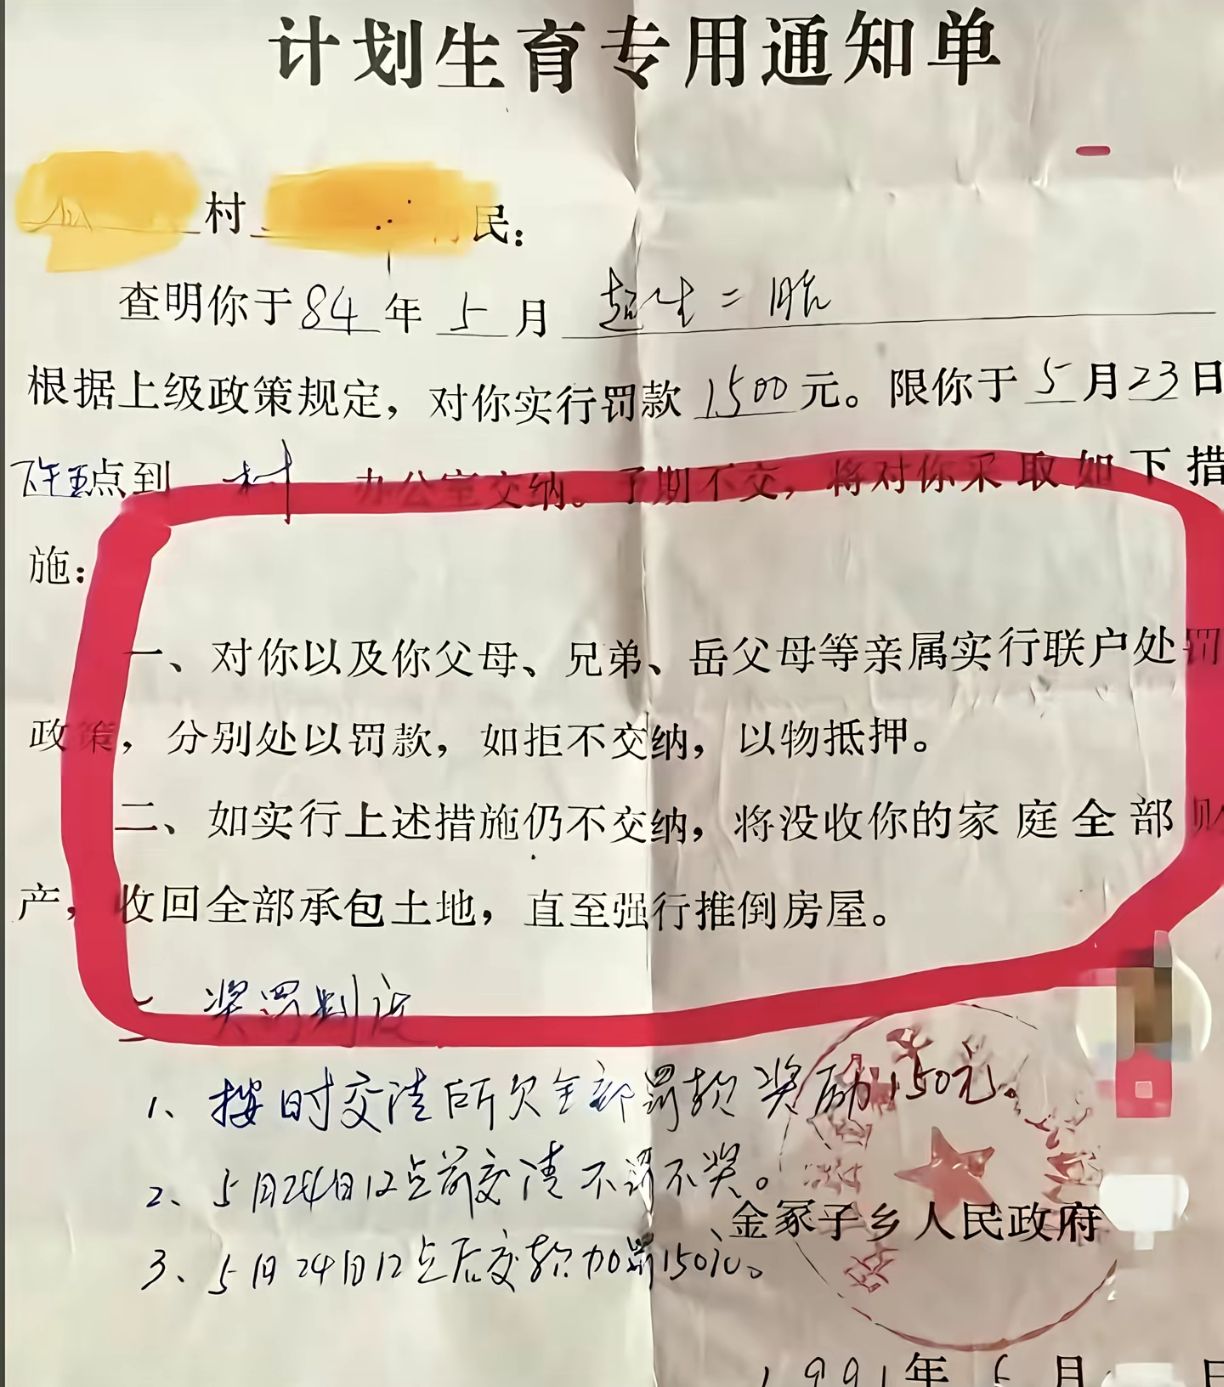 计划生育专用通知单
村 民：
查明你于84年5月超生二胎
根据上级政策规定，对你实行罚款1500元。限你于5月23日
点到村办公室交纳。予期不交，将对你采取如下措
施：
一、对你以及你父母、兄弟、岳父母等亲属实行联户处罚
政策，分别处以罚款，如拒不交纳，以物抵押。
二、如实行上述措施仍不交纳，将没收你的家庭全部财
产，收回全部承包土地，直至强行推倒房屋。
奖罚制度
1、按时交清所欠全部罚款奖励150元。
2、5月24日12点前交清不罚不奖。
3、5月24日12点后交款加罚150元。
金冢子乡人民政府
1991年 月 日